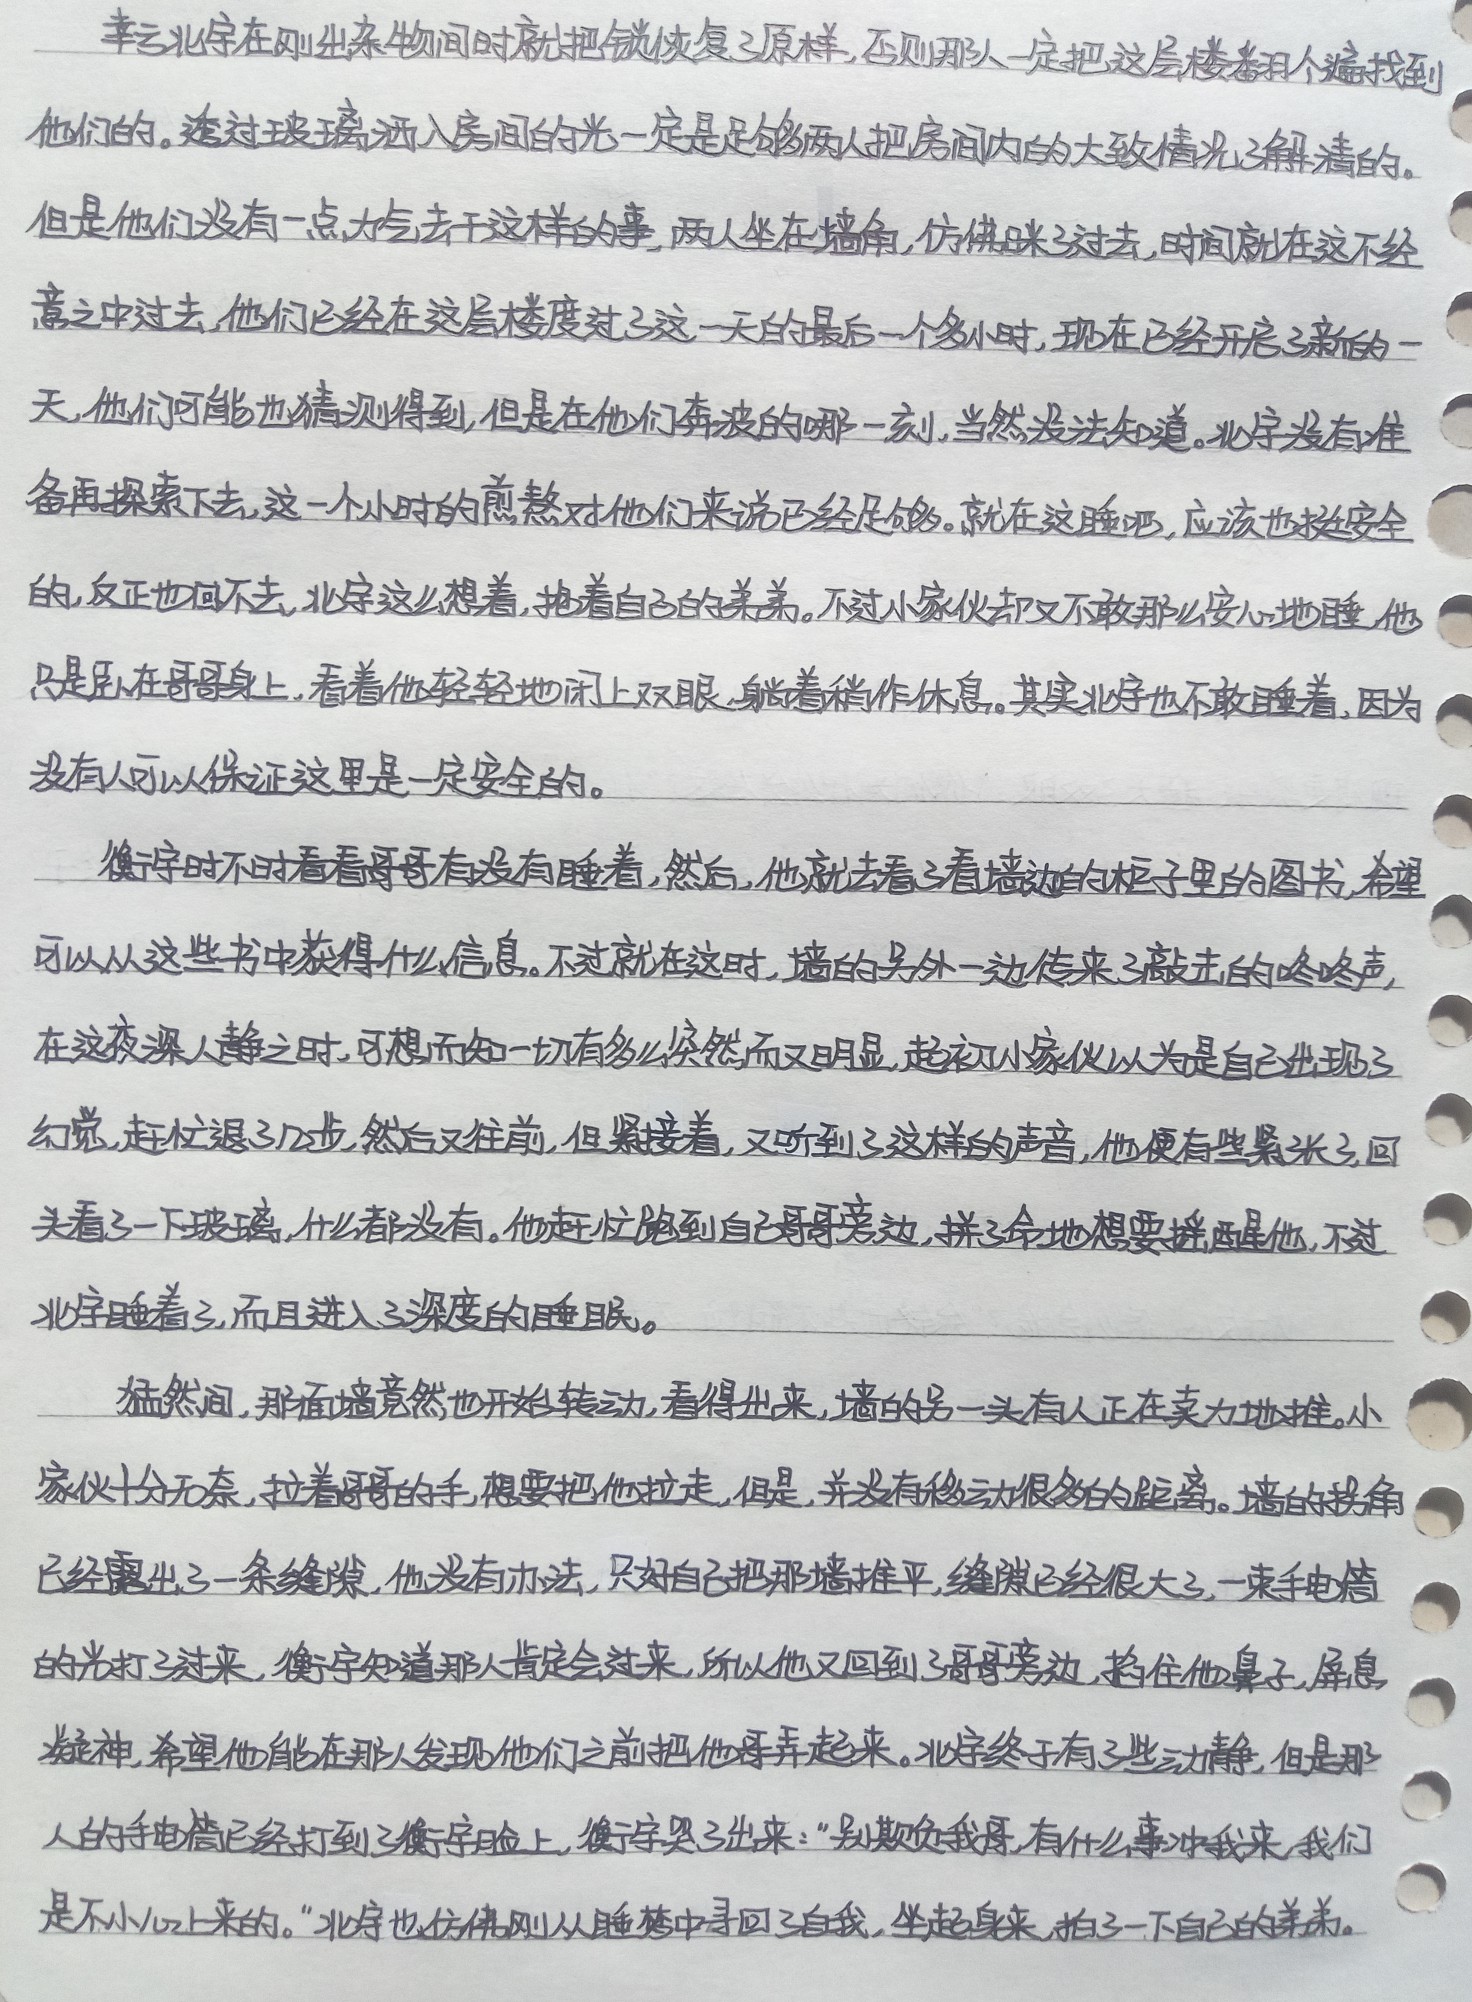 幸亏北宇在刚出杂物间时就把锁恢复了原样,否则那人一定把这层楼翻个遍找到
他们的。透过玻璃洒入房间的光一定是足够两人把房间内的大致情况了解清的。
但是他们没有一点力气去干这样的事,两人坐在墙角,仿佛眯了过去,时间就在这不经
意之中过去,他们已经在这层楼度过了这一天的最后一个多小时,现在已经开启了新的一
天,他们可能也猜测得到,但是在他们奔波的哪一刻,当然没法知道。北宇没有准
备再探索下去,这一个小时的煎熬对他们来说已经足够。就在这睡吧,应该也挺安全
的,反正也回不去,北宇这么想着,抱着自己的弟弟。不过小家伙却又不敢那么安心地睡,他
只是卧在哥哥身上,看着他轻轻地闭上双眼,躺着稍作休息。其实北宇也不敢睡着,因为
没有人可以保证这里是一定安全的。
衡宇时不时看看哥哥有没有睡着,然后,他就去看了看墙边的柜子里的图书,希望
可以从这些书中获得什么信息。不过就在这时,墙的另外一边传来了敲击的咚咚声,
在这夜深人静之时,可想而知一切有多么突然而又明显,起初小家伙以为是自己出现了
幻觉,赶忙退了几步,然后又往前,但紧接着,又听到了这样的声音,他便有些紧张了,回
头看了一下玻璃,什么都没有。他赶忙跑到自己哥哥旁边,拼了命地想要摇醒他,不过
北宇睡着了,而且进入了深度的睡眠。
猛然间,那面墙竟然也开始转动,看得出来,墙的另一头有人正在卖力地推。小
家伙十分无奈,拉着哥哥的手,想要把他拉走,但是,并没有移动很多的距离。墙的拐角
已经露出了一条缝隙,他没有办法,只好自己把那墙推平,缝隙已经很大了,一束手电筒
的光打了过来,衡宇知道那人肯定会过来,所以他又回到了哥哥旁边,掐住他鼻子,屏息
凝神,希望他能在那人发现他们之前把他哥弄起来。北宇终于有了些动静,但是那
人的手电筒已经打到了衡宇脸上,衡宇哭了出来:“别欺负我哥,有什么事冲我来,我们
是不小心上来的。”北宇也仿佛刚从睡梦中寻回了自我,坐起身来,拍了一下自己的弟弟。